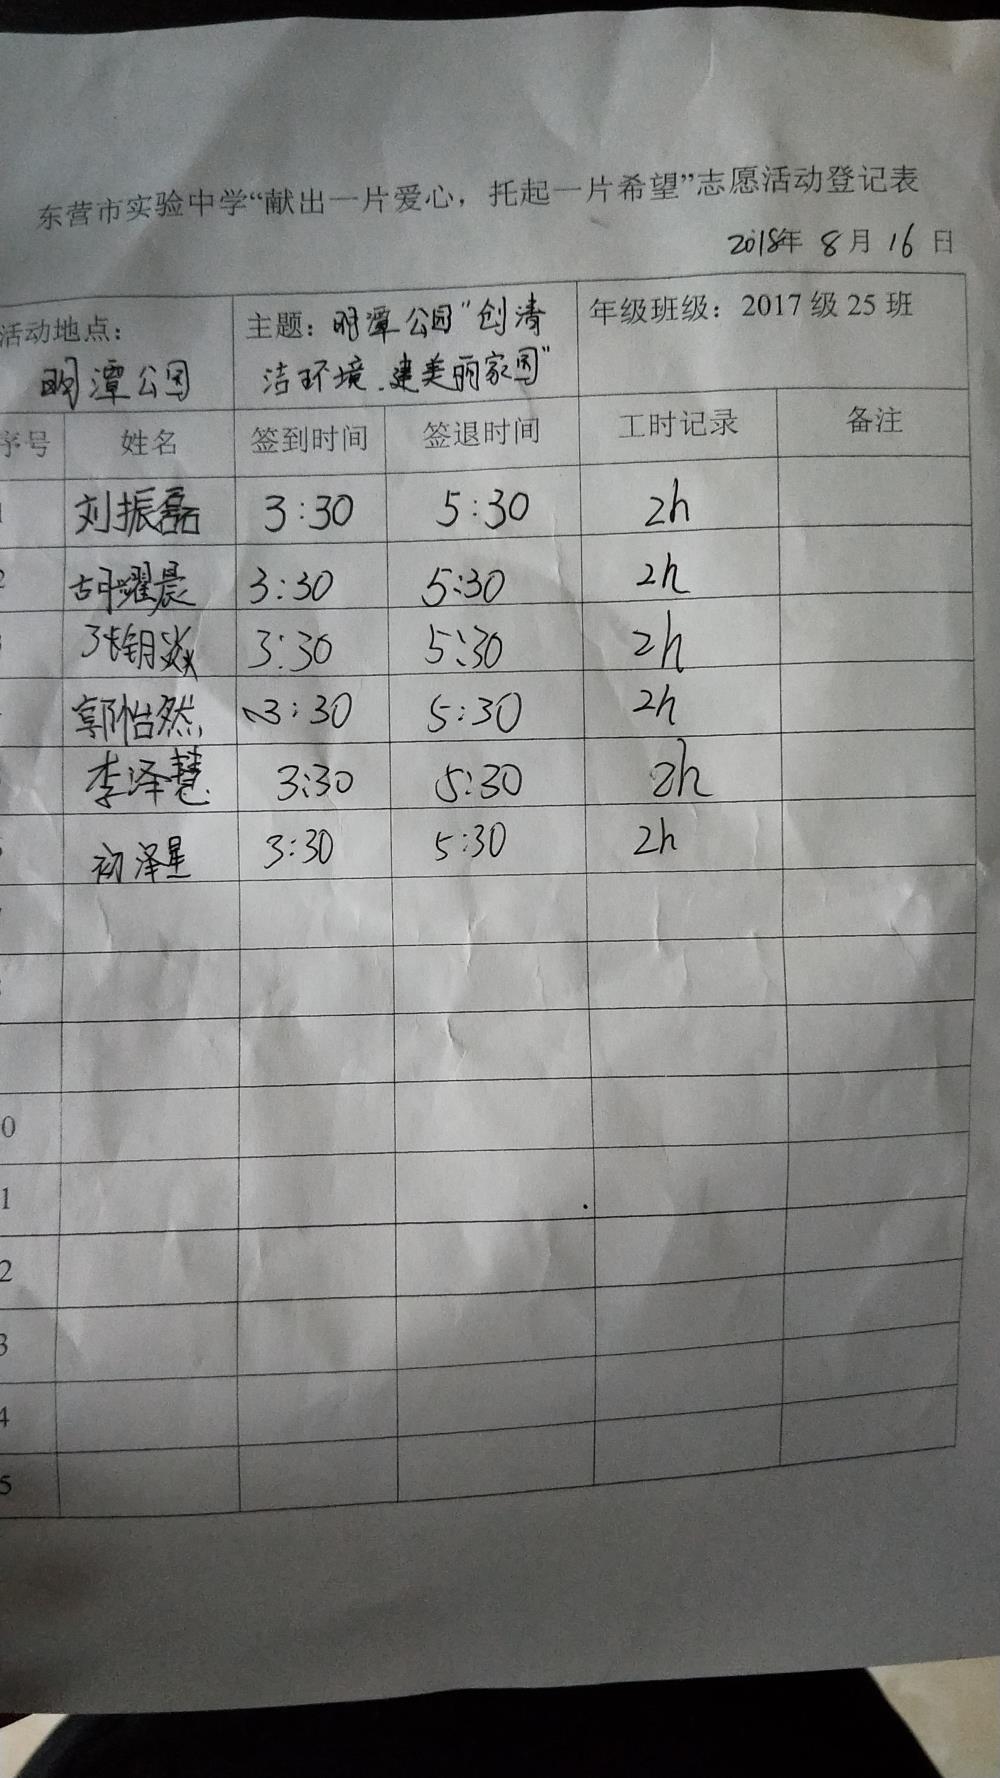 东营市实验中学“献出一片爱心，托起一片希望”志愿活动登记表
2018年 8 月 16 日
活动地点： 主题：明潭公园“创清 年级班级：2017 级 25 班
明潭公园 洁环境.建美丽家园”
序号 姓名 签到时间 签退时间 工时记录 备注
1 刘振磊 3:30 5:30 2h
2 胡耀晨 3:30 5:30 2h
张钥焱 3:30 5:30 2h
郭怡然 3:30 5:30 2h
李泽慧 3:30 5:30 2h
初泽星 3:30 5:30 2h
0
1
2
3
4
5